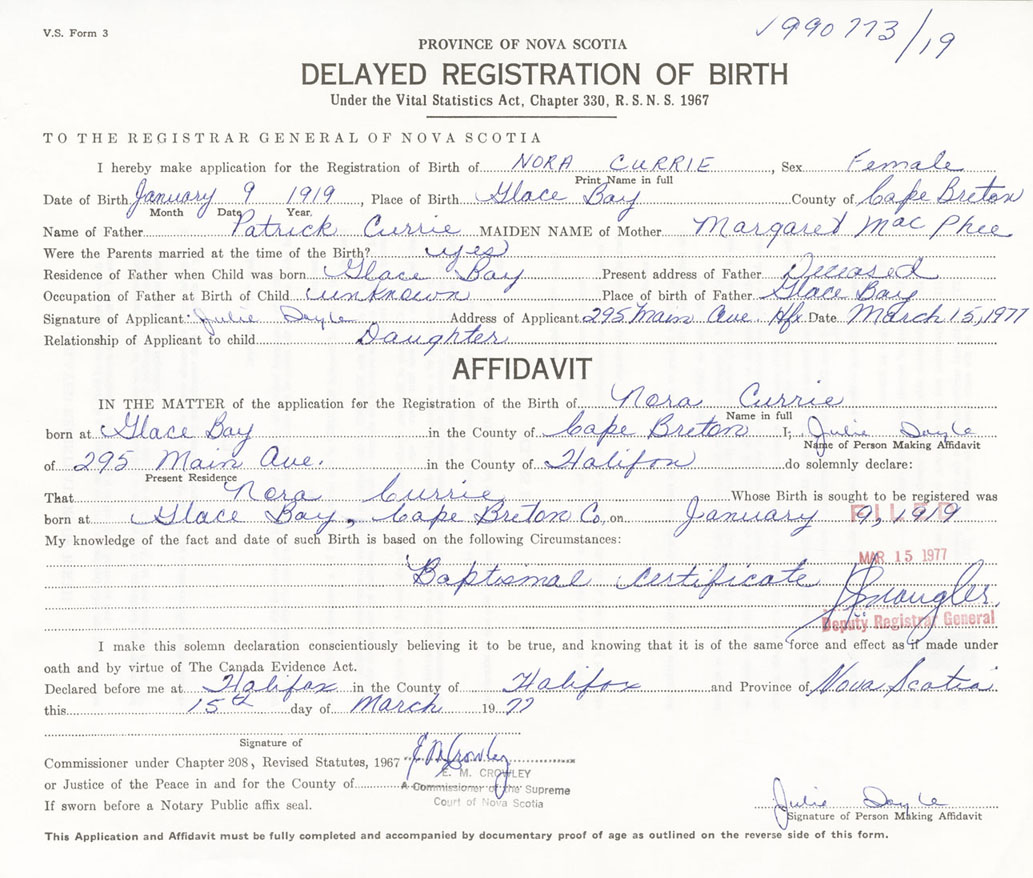 V.S. Form 3
1990 773/19
PROVINCE OF NOVA SCOTIA
DELAYED REGISTRATION OF BIRTH
Under the Vital Statistics Act, Chapter 330, R.S.N.S. 1967
TO THE REGISTRAR GENERAL OF NOVA SCOTIA
I hereby make application for the Registration of Birth of NORA CURRIE, Sex Female
Print Name in full
Date of Birth January 9 1919, Place of Birth Glace Bay County of Cape Breton
Month Date Year.
Name of Father Patrick Currie MAIDEN NAME of Mother Margaret Mac Phee
Were the Parents married at the time of the Birth? yes
Residence of Father when Child was born Glace Bay Present address of Father Deceased
Occupation of Father at Birth of Child unknown Place of birth of Father Glace Bay
Signature of Applicant: Julie Doyle Address of Applicant 295 Main Ave. Hfx Date March 15, 1977
Relationship of Applicant to child Daughter
AFFIDAVIT
IN THE MATTER of the application for the Registration of the Birth of Nora Currie
Name in full
born at Glace Bay in the County of Cape Breton I, Julie Doyle
Name of Person Making Affidavit
of 295 Main Ave. in the County of Halifax do solemnly declare:
Present Residence
That Nora Currie Whose Birth is sought to be registered was
born at Glace Bay, Cape Breton Co, on January 9, 1919
FILED
My knowledge of the fact and date of such Birth is based on the following Circumstances:
MAR 15 1977
Baptismal certificate
Deputy Registrar General
I make this solemn declaration conscientiously believing it to be true, and knowing that it is of the same force and effect as if made under
oath and by virtue of The Canada Evidence Act.
Declared before me at Halifax in the County of Halifax and Province of Nova Scotia
this 15th day of March 1977
Signature of
Commissioner under Chapter 208, Revised Statutes, 1967 E M Crowley
E. M. CROWLEY
or Justice of the Peace in and for the County of A Commissioner of the Supreme
Court of Nova Scotia
If sworn before a Notary Public affix seal.
Julie Doyle
Signature of Person Making Affidavit
This Application and Affidavit must be fully completed and accompanied by documentary proof of age as outlined on the reverse side of this form.